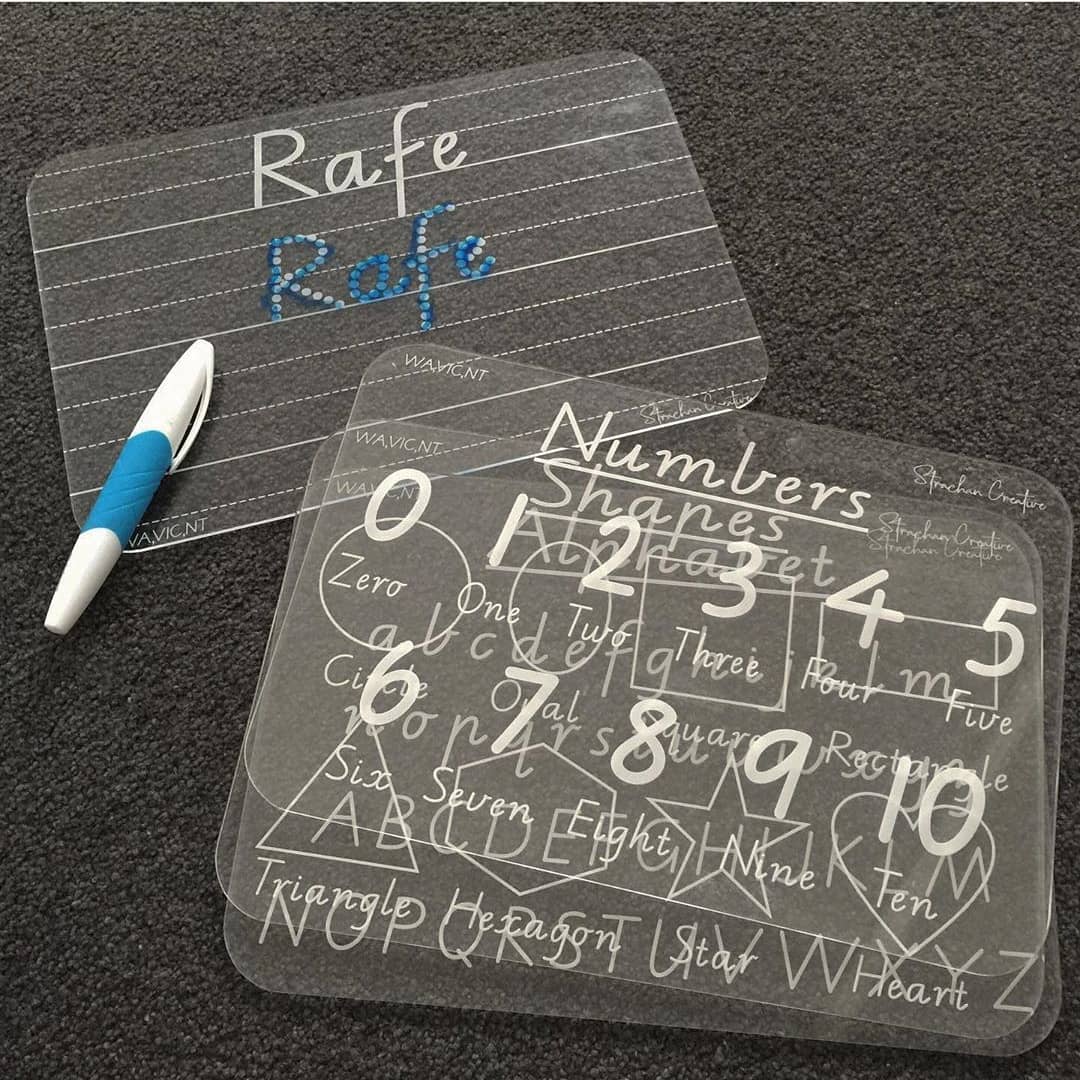 Rafe
Rafe
WA,VIC,NT
Strachan Creative
WA,VIC,NT
Strachan Creative
Numbers
0 1 2 3 4 5
Zero One Two Three Four Five
6 7 8 9 10
Six Seven Eight Nine Ten
WA,VIC,NT
Strachan Creative
Shapes
Circle Oval Square Rectangle
Triangle Hexagon Star Heart
WA,VIC,NT
Strachan Creative
Alphabet
a b c d e f g h i j k l m
n o p q r s t u v w x y z
A B C D E F G H I J K L M
N O P Q R S T U V W X Y Z